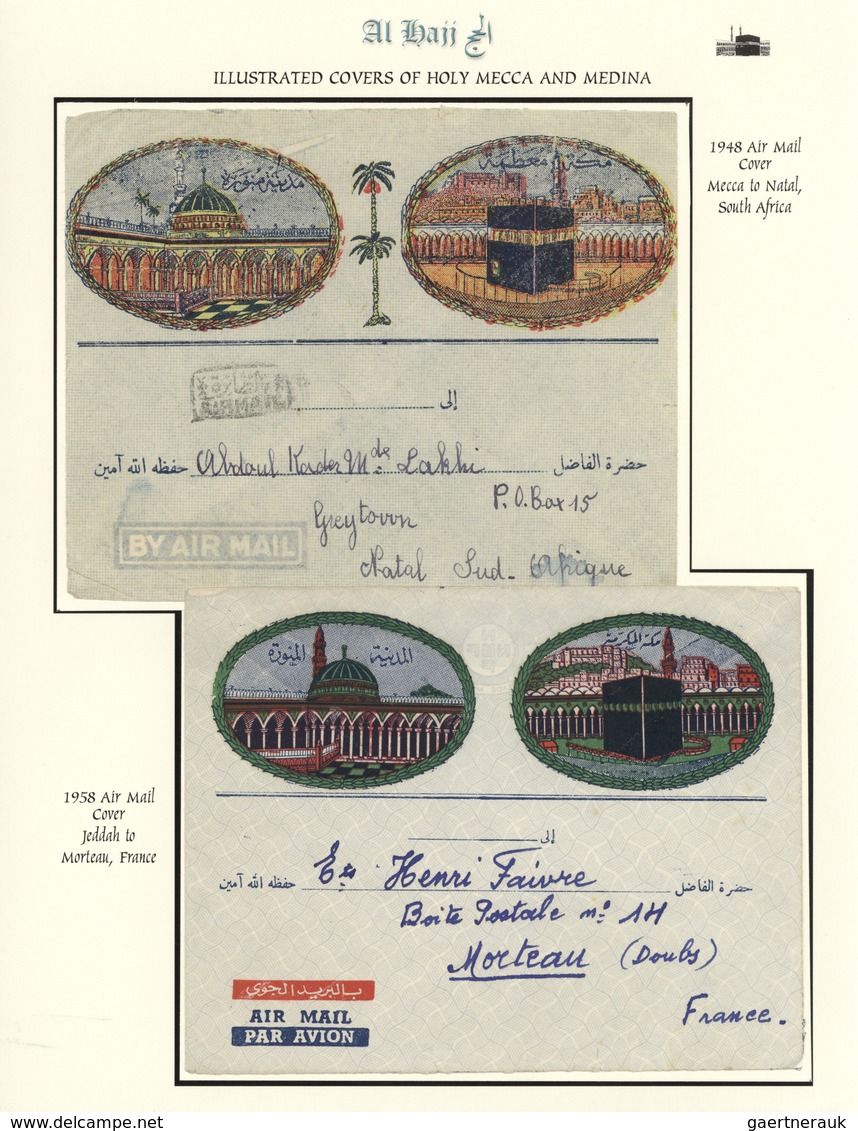 Al Hajj الحج
ILLUSTRATED COVERS OF HOLY MECCA AND MEDINA
1948 Air Mail
Cover
Mecca to Natal,
South Africa
مدينة منورة
مكة معظمة
AIRMAIL
إلى
حضرة الفاضل Abdoul Kader Mde Lakhi حفظه الله آمين
P.O.Box 15
Greytown
Natal Sud-Afrique
BY AIR MAIL
المدينة المنورة
مكة المكرمة
1958 Air Mail
Cover
Jeddah to
Morteau, France
إلى
حضرة الفاضل Ets Henri Faivre حفظه الله آمين
Boite Postale no 14
Morteau (Doubs)
France.
بالبريد الجوي
AIR MAIL
PAR AVION
Delcampe.net
gaertnerauk